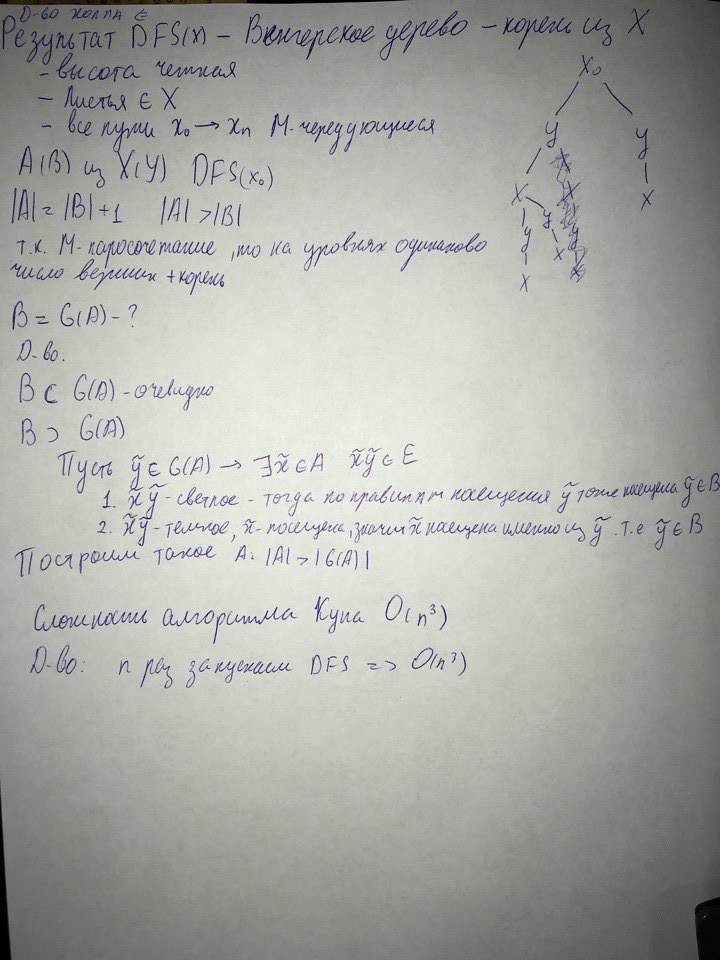 Д-во холла ∈
Результат DFS(x) – Венгерское дерево – корень из X
- высота четная
- Листья ∈ X
- все пути x₀ → xₙ M-чередующиеся
A(B) из X(Y) DFS(x₀)
|A| = |B| + 1 |A| > |B|
т.к. M-паросочетание, то на уровнях одинаково
число вершин + корень
B = G(A) - ?
Д-во.
B ⊂ G(A) - очевидно
B ⊃ G(A)
Пусть ỹ ∈ G(A) → ∃x̃ ∈ A x̃ỹ ∈ E
1. x̃ỹ - светлое - тогда по правилам посещения ỹ тоже посещена ỹ ∈ B
2. x̃ỹ - темное, x̃ - посещена, значит x̃ посещена именно из ỹ. т.е ỹ ∈ B
Построим такое A: |A| > |G(A)|
Сложность алгоритма Куна O(n³)
Д-во: n раз запускаем DFS => O(n³)
X₀
y y
X x
y y
x
X